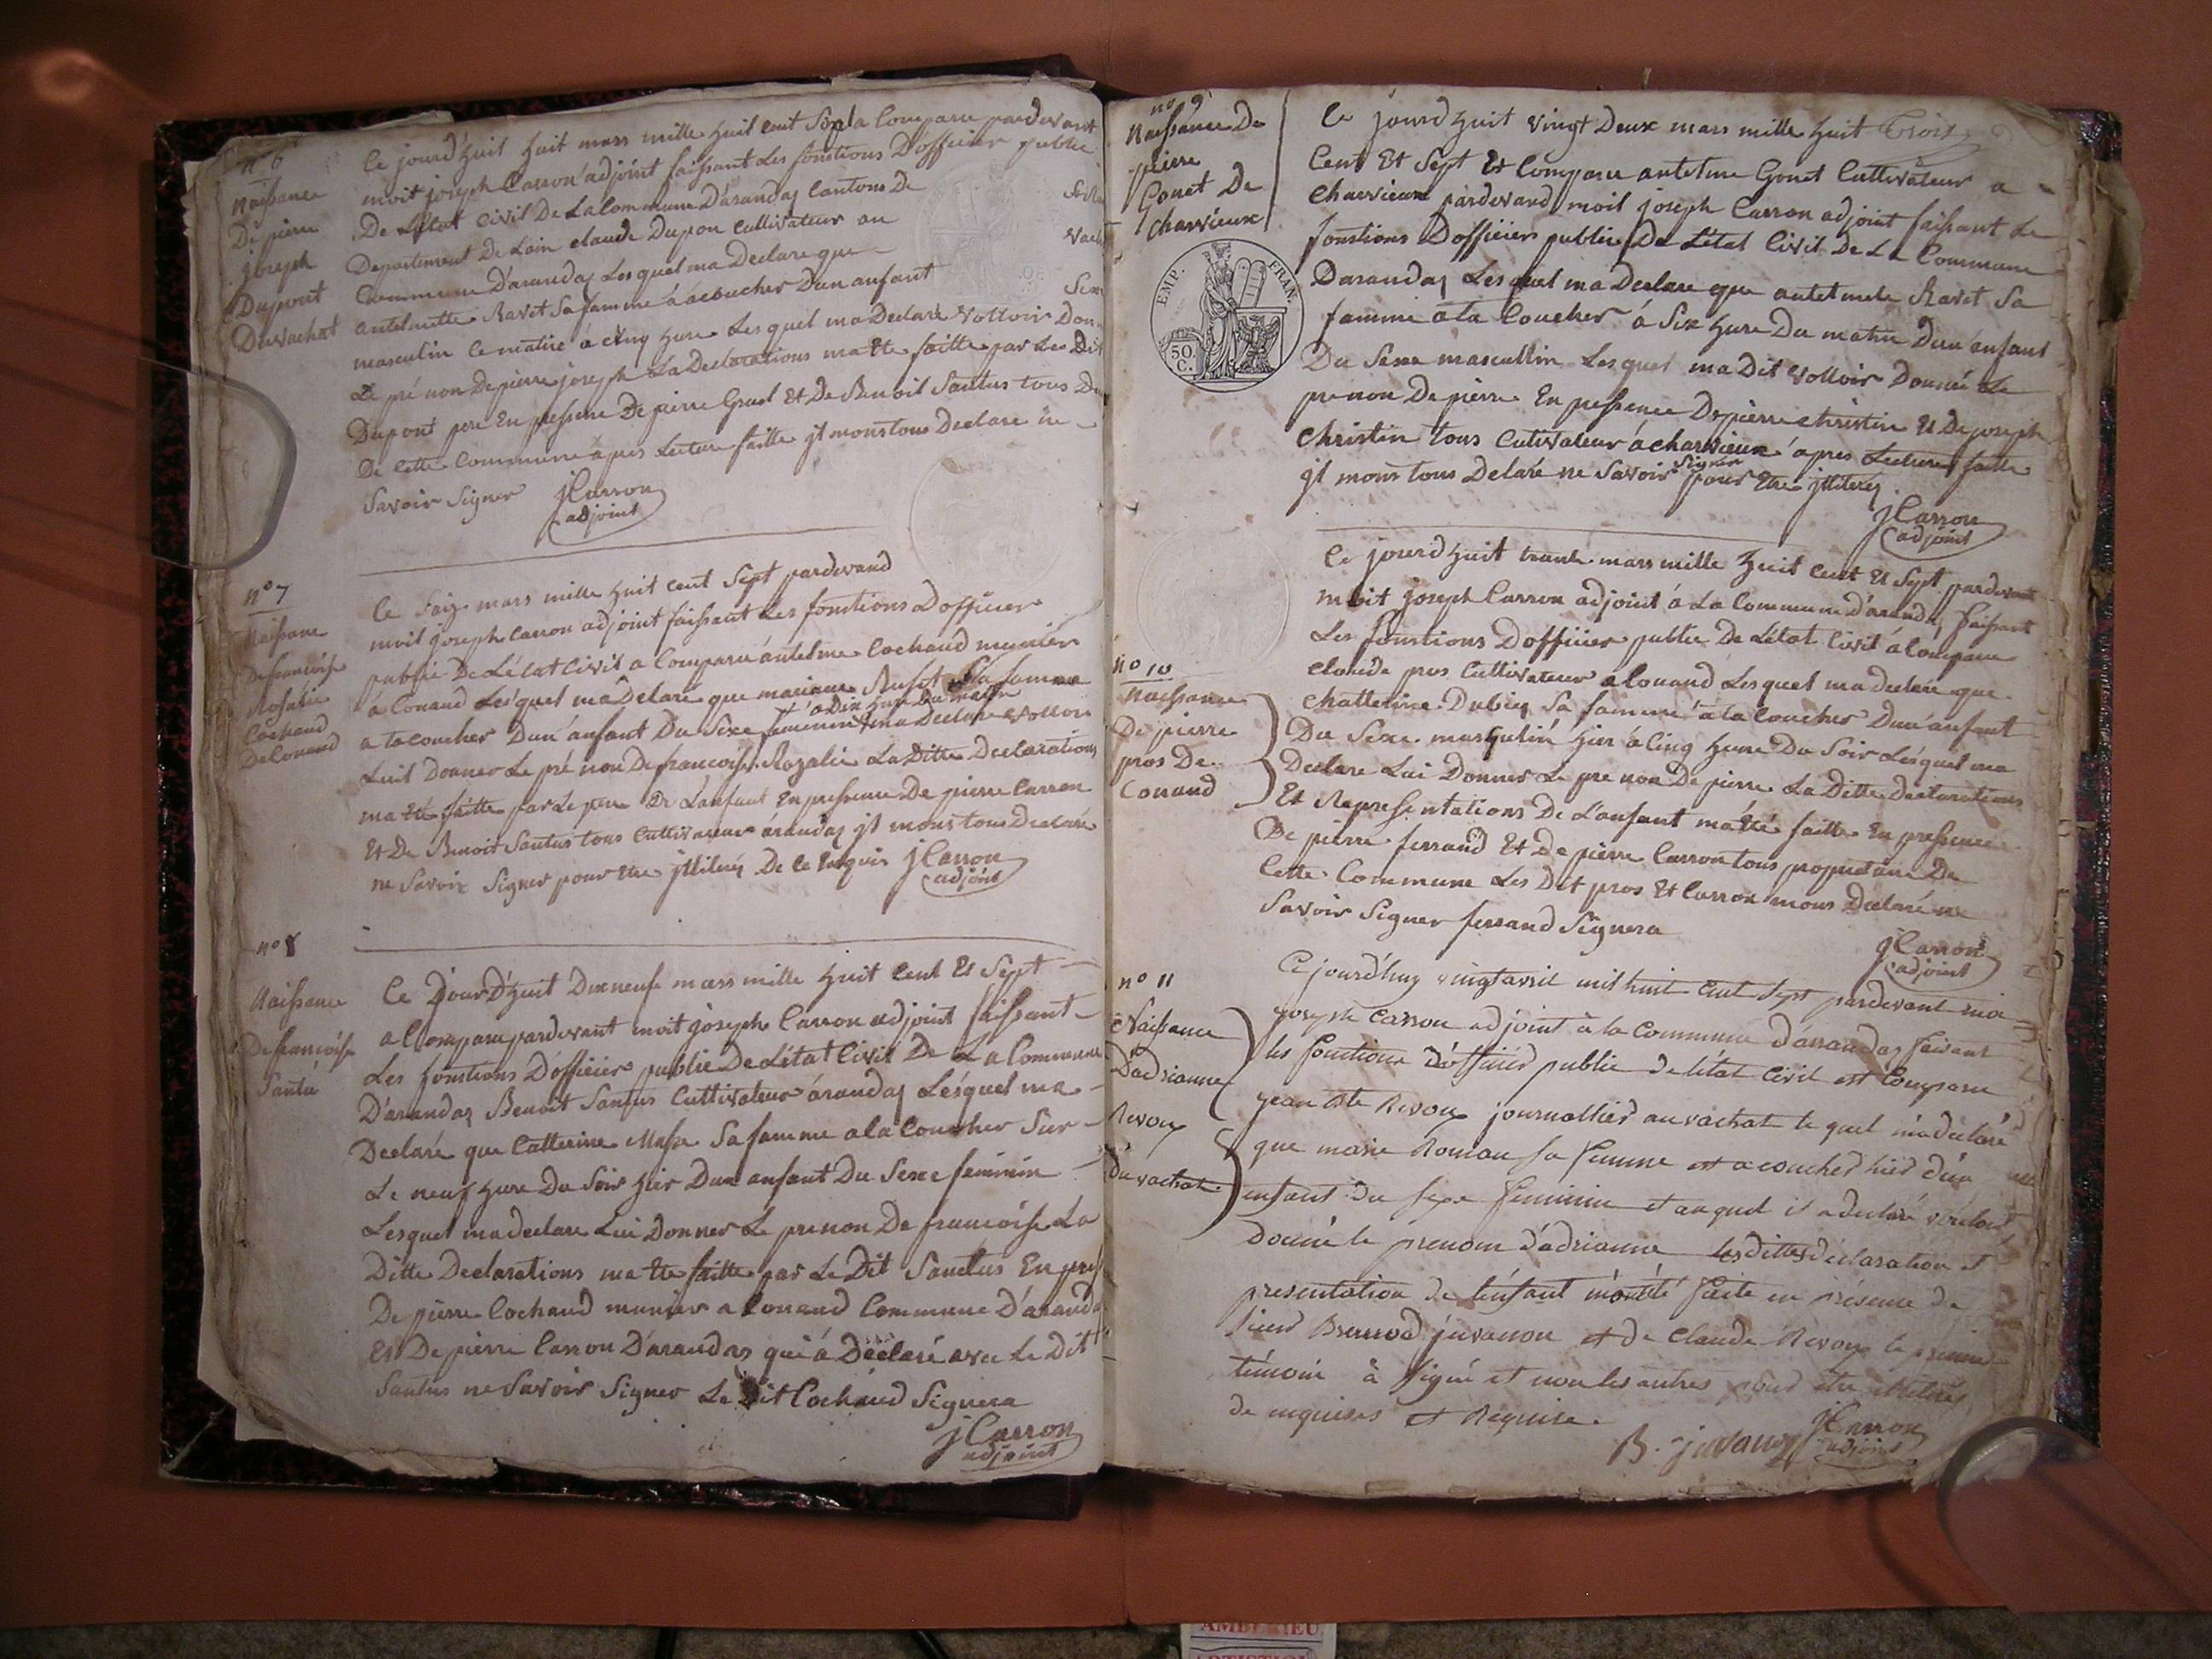 n° 6
Naissance
De pierre
joseph
Dupont
Du vachat
Ce jourd'huit huit mars mille huit cent Sept a Comparu pardevant
moit joseph Carron adjoint faissant Les fonstions D'officier public
De Létat Civil De La Commune D'arandas Cantons De
Departement De Lain claude Dupon Cultivateur au
Commune D'arandas Lesquel ma Declare que
antelmette Ravet Sa famme a acoucher Dun anfant
masculin Ce matin à cinq hure Lesquel ma Declaré Volloir Don
Le pré non De pierre joseph La Declarations ma ete faitte par Le Dit
Dupont pere En pressence De pierre Grul Et De Benoit Santus tous De
De Cette Commune àpres Lecture faitte jl mons tous Declare ne
Savoir Signer
jCarron
adjoint
n° 7
Naissance
De francoise
Rosalie
Cochand
De Conand
Ce Saiz mars mille huit cent Sept pardevand
moit joseph Carron adjoint faissant Les fonstions D officier
public De Létat Civil a Comparu antelme Cochand munier
à Conand Lesquel ma Delaré que mariane Rufot Sa famme
a Dix hure Du matin
a ta coucher Dun anfant Du Sexe feminin ma Declare Volloir
Luit Donner Le pré non De francoise Rozalie La Ditte Declarations
ma ete faitte par Le pere De Lanfant En pressence De pierre Carron
Et De Benoit Santus tous Cultivateur àrandas jl mons tous Declaré
ne Savoir Signer pour etre jlliteré De Ce Enquis
jCarron
adjoint
n° 8
Naissance
De francoise
Santu
Ce Jourd'huit Dixneufe mars mille huit Cent Et Sept
a Comparu pardevant moit joseph Carron adjoint faissant
Les fonstions D'officier public De Létat Civil De La Commune
D'arandas Benoit Santus Cultivateur àrandas Lesquel ma
Declaré que Catterine Masse Sa famme a la Coucher Sur
Le neuf hure Du Soir hier Dun anfant Du Sexe feminin
Lesquel ma declare Lui Donner Le prenon De francoise La
Ditte Declarations ma ete faitte par Le Dit Sanctus En pres
De pierre Cochand munier a Conand Commune D'aranda
Et De pierre Carron D'arandas qui à Declaré avec Le Dit
Santus ne Savoir Signer Le Dit Cochand Signera
jCarron
adjoint
n° 9
Naissance De
pierre
Gonet De
Charvieux
Ce jourd huit vingt Deux mars mille huit
Cent Et Sept Et Comparu antelme Gonet Cultivateur a
Charvieux pardevand moit joseph Carron adjoint faissant Le
fonstions D officier public De Létat Civil De La Commune
Darandas Lesquel ma Declare que antelmete Ravet Sa
famme a ta Coucher à Six hure Du matin Dun anfant
Du Sexe mascullin Lesquel ma Dit Volloir Donner Le
prenon De pierre En pressence De pierre Christin Et De joseph
Christin tous Cutivateur à charvieux àpres Lecture faitte
Signer
jl mons tous Delaré ne Savoir pour Etre jlliteré
jCarron
adjoint
EMP. FRAN.
50.
C.
n° 10
Naissance
De pierre
pros De
Conand
Ce jourd huit trante mars mille huit Cent Et Sept pardevant
moit joseph Carron adjoint à La Commune D'arandas faissant
Les fonstions D officier public De Létat Civil à Comparu
claude pros Cultivateur a Conand Lesquel ma declaré que
Chatterine Dubieu Sa famme a ta Coucher Dun anfant
Du Sexe masqulin hier à Cinq hure Du Soir Lesquel ma
Declare Lui Donner Le pre non De pierre La Ditte Declarations
Et Representations De L'anfant ma été faitte En pressence
De pierre ferrand Et De pierre Carron tous propriétaire De
Cette Commune Les Dit pros Et Carron mons Declaré ne
Savoir Signer ferrand Signera
jCarron
adjoint
n° 11
Naissance
D'adrianne
Revoux
du vachat
Ce jourd'huy vingt avril mil huit Cent Sept pardevant moi
joseph Carron adjoint à la Commune d'arandas faisant
les fonctions d'officier public de l'état Civil est Comparu
jean Bte Revoux journallier au vachat le quel m'a declaré
que marie Roman sa femme est acouchée hier d'un
enfant du sexe feminin et auquel il a declaré vouloir
donné le prenom d'adrianne les dittes déclaration et
presentation de l'enfant m'ont été faite en présence de
Sieur juvanon et de Claude Revoux le premier
témoin à signé et non les autres pour etre illiterés
de enquises et Requise.
B. juvanon
jCarron
adjoint